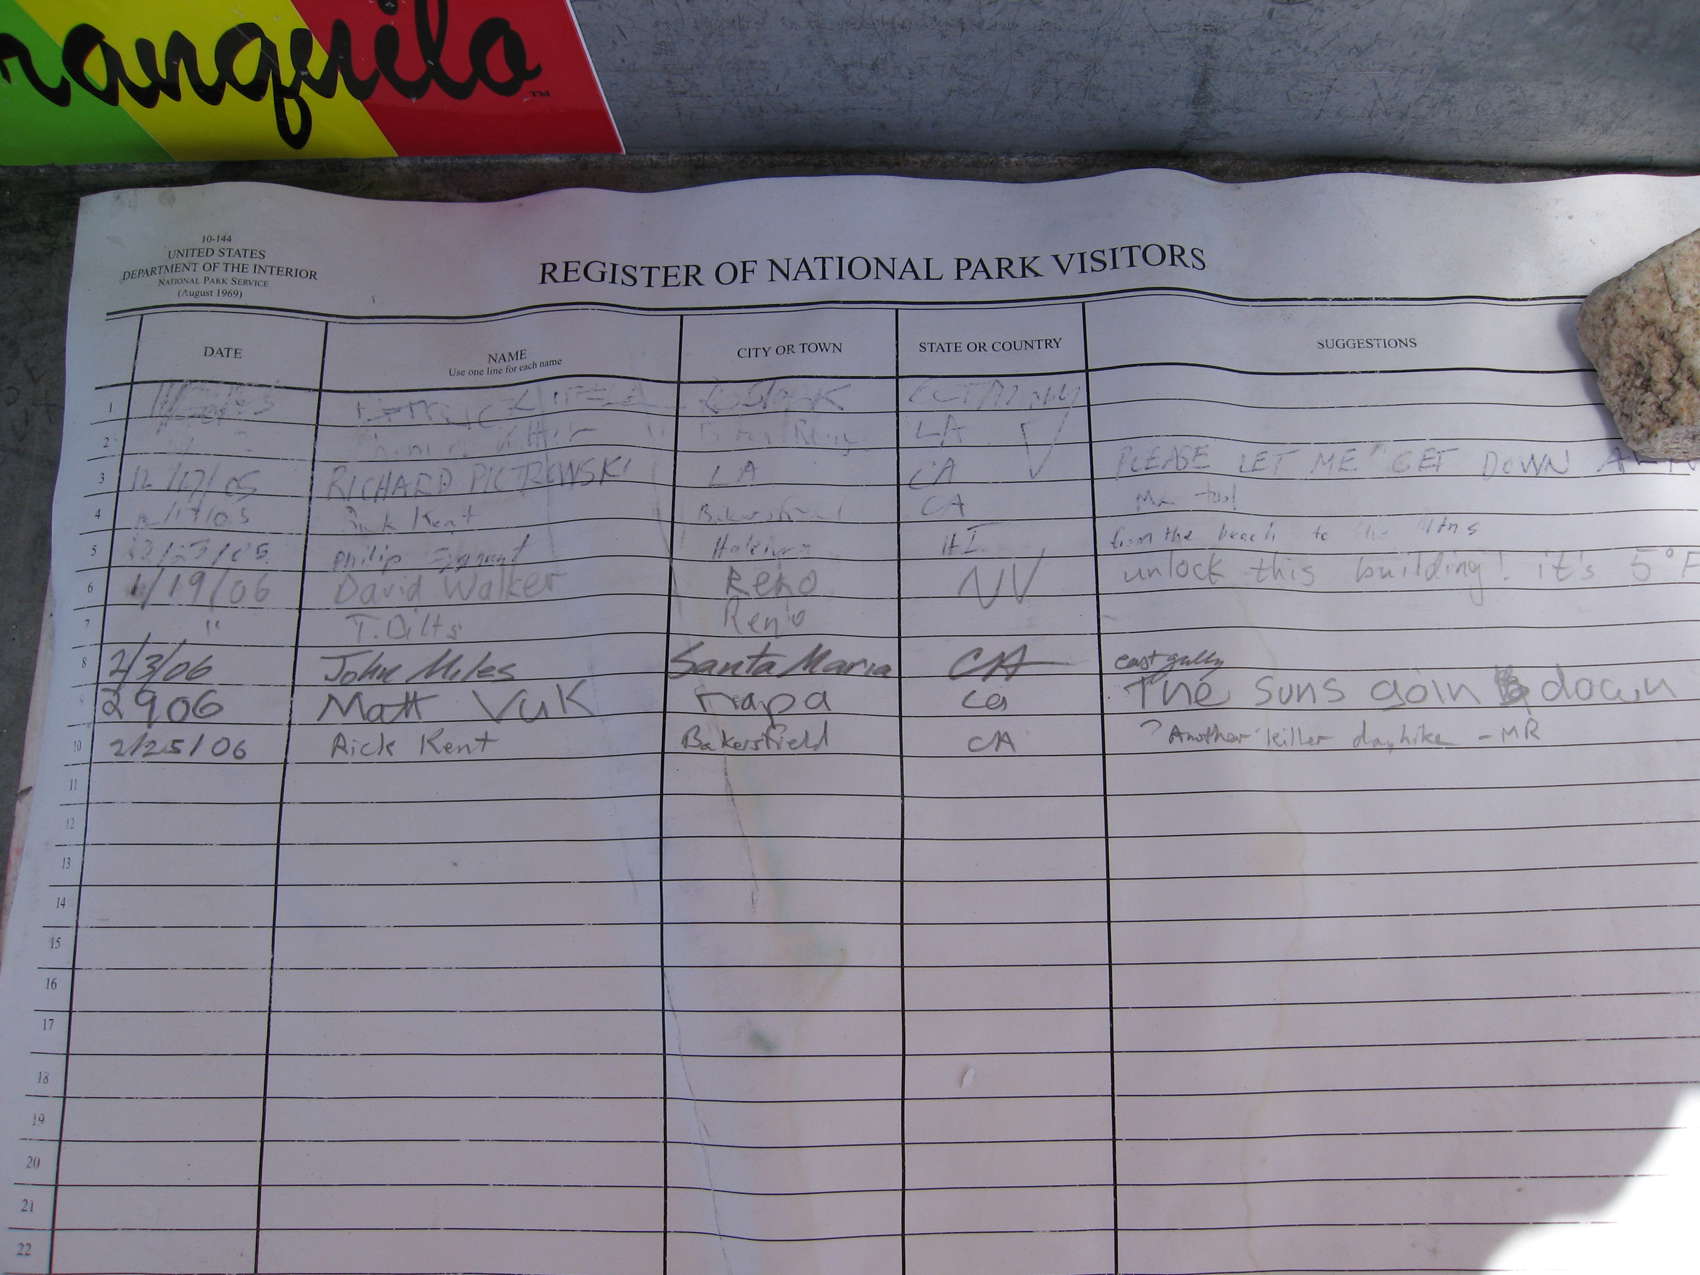 ranquilo™
10-144
UNITED STATES
DEPARTMENT OF THE INTERIOR
NATIONAL PARK SERVICE
(August 1969)
REGISTER OF NATIONAL PARK VISITORS
DATE NAME CITY OR TOWN STATE OR COUNTRY SUGGESTIONS
Use one line for each name
1
2 LA
3 12/17/05 RICHARD PIOTROWSKI LA CA PLEASE LET ME GET DOWN
4 12/17/05 Rick Kent Bakersfield CA
5 12/27/05 Philip HI from the beach to the Mtns
6 1/19/06 David Walker Reno NV unlock this building! it's 5°F
7 " T. Dilts Reno
8 2/3/06 John Miles Santa Maria CA east gully
2906 Matt Vuk napa ca The suns goin down
10 2/25/06 Rick Kent Bakersfield CA ? Another killer dayhike - MR
11
12
13
14
15
16
17
18
19
20
21
22